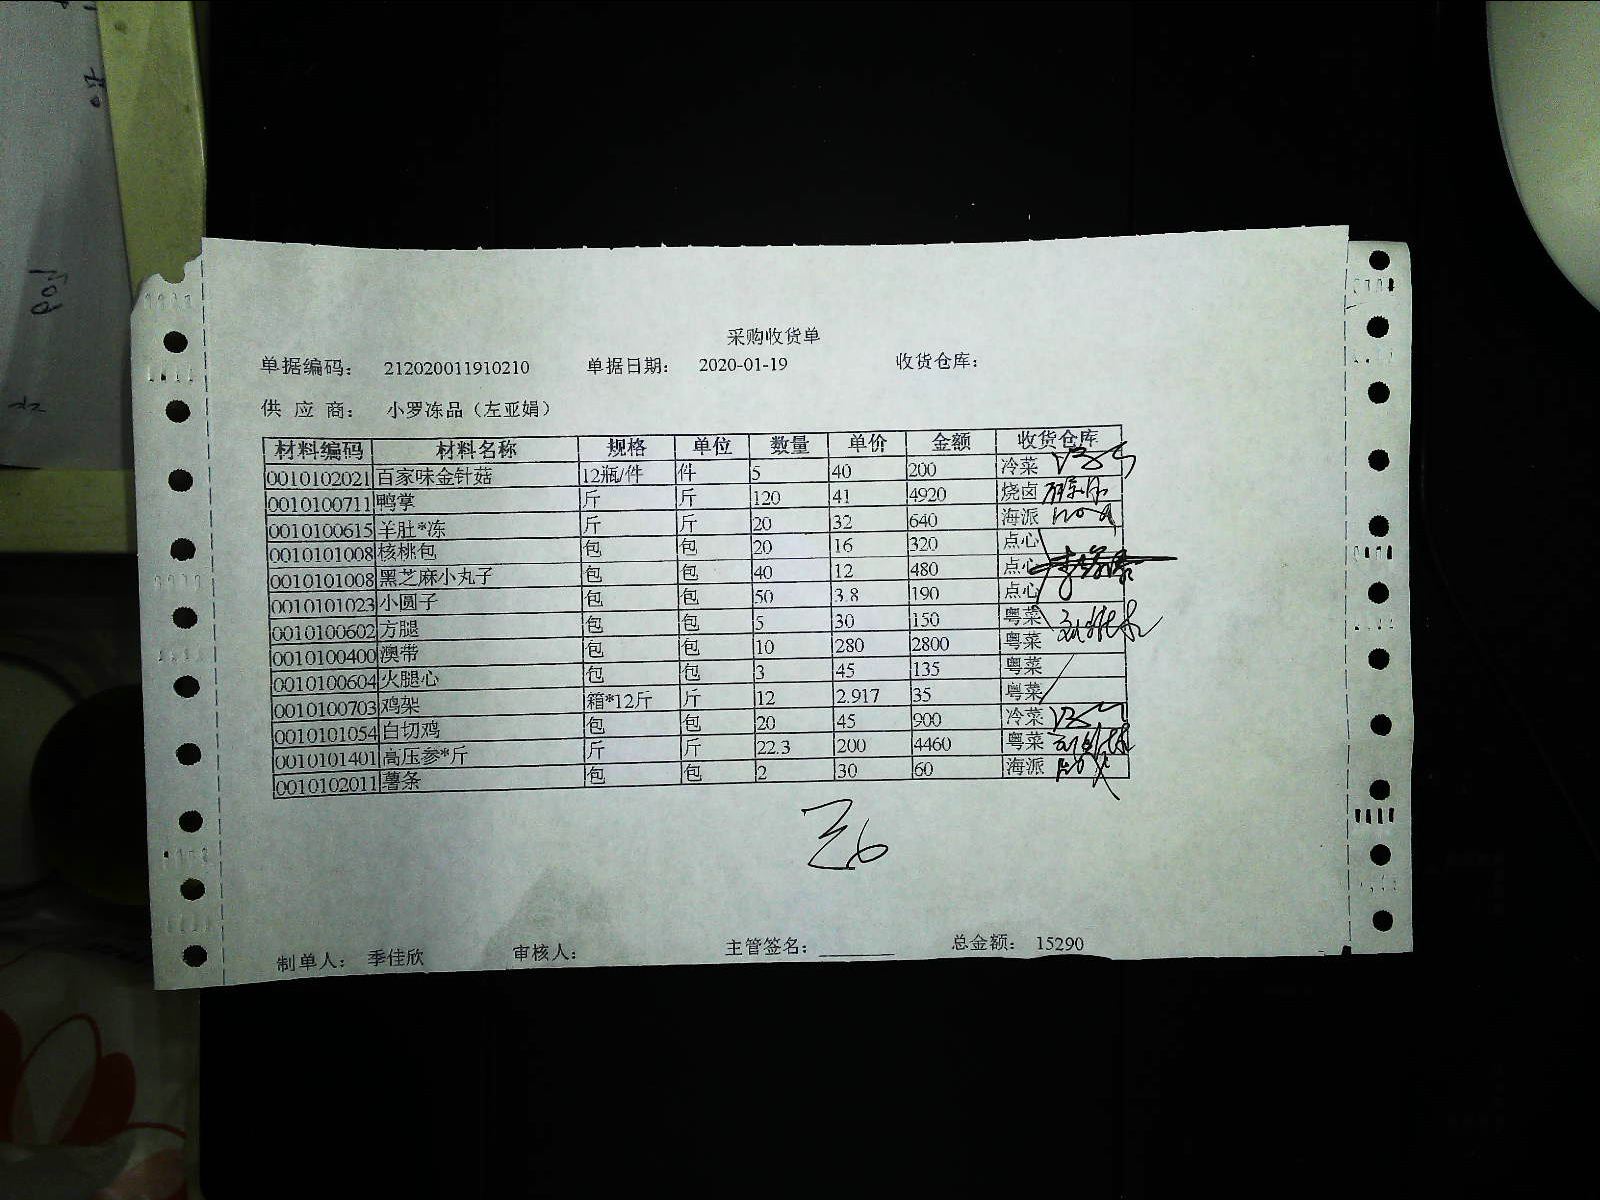 采购收货单
单据编码： 212020011910210 单据日期： 2020-01-19 收货仓库：
供 应 商： 小罗冻品（左亚娟）
材料编码 材料名称 规格 单位 数量 单价 金额 收货仓库
0010102021 百家味金针菇 12瓶/件 件 5 40 200 冷菜
0010100711 鸭掌 斤 斤 120 41 4920 烧卤
0010100615 羊肚*冻 斤 斤 20 32 640 海派
0010101008 核桃包 包 包 20 16 320 点心
0010101008 黑芝麻小丸子 包 包 40 12 480 点心
0010101023 小圆子 包 包 50 3.8 190 点心
0010100602 方腿 包 包 5 30 150 粤菜
0010100400 澳带 包 包 10 280 2800 粤菜
0010100604 火腿心 包 包 3 45 135 粤菜
0010100703 鸡架 箱*12斤 斤 12 2.917 35 粤菜
0010101054 白切鸡 包 包 20 45 900 冷菜
0010101401 高压参*斤 斤 斤 22.3 200 4460 粤菜
0010102011 薯条 包 包 2 30 60 海派
制单人： 季佳欣 审核人： 主管签名： 总金额： 15290